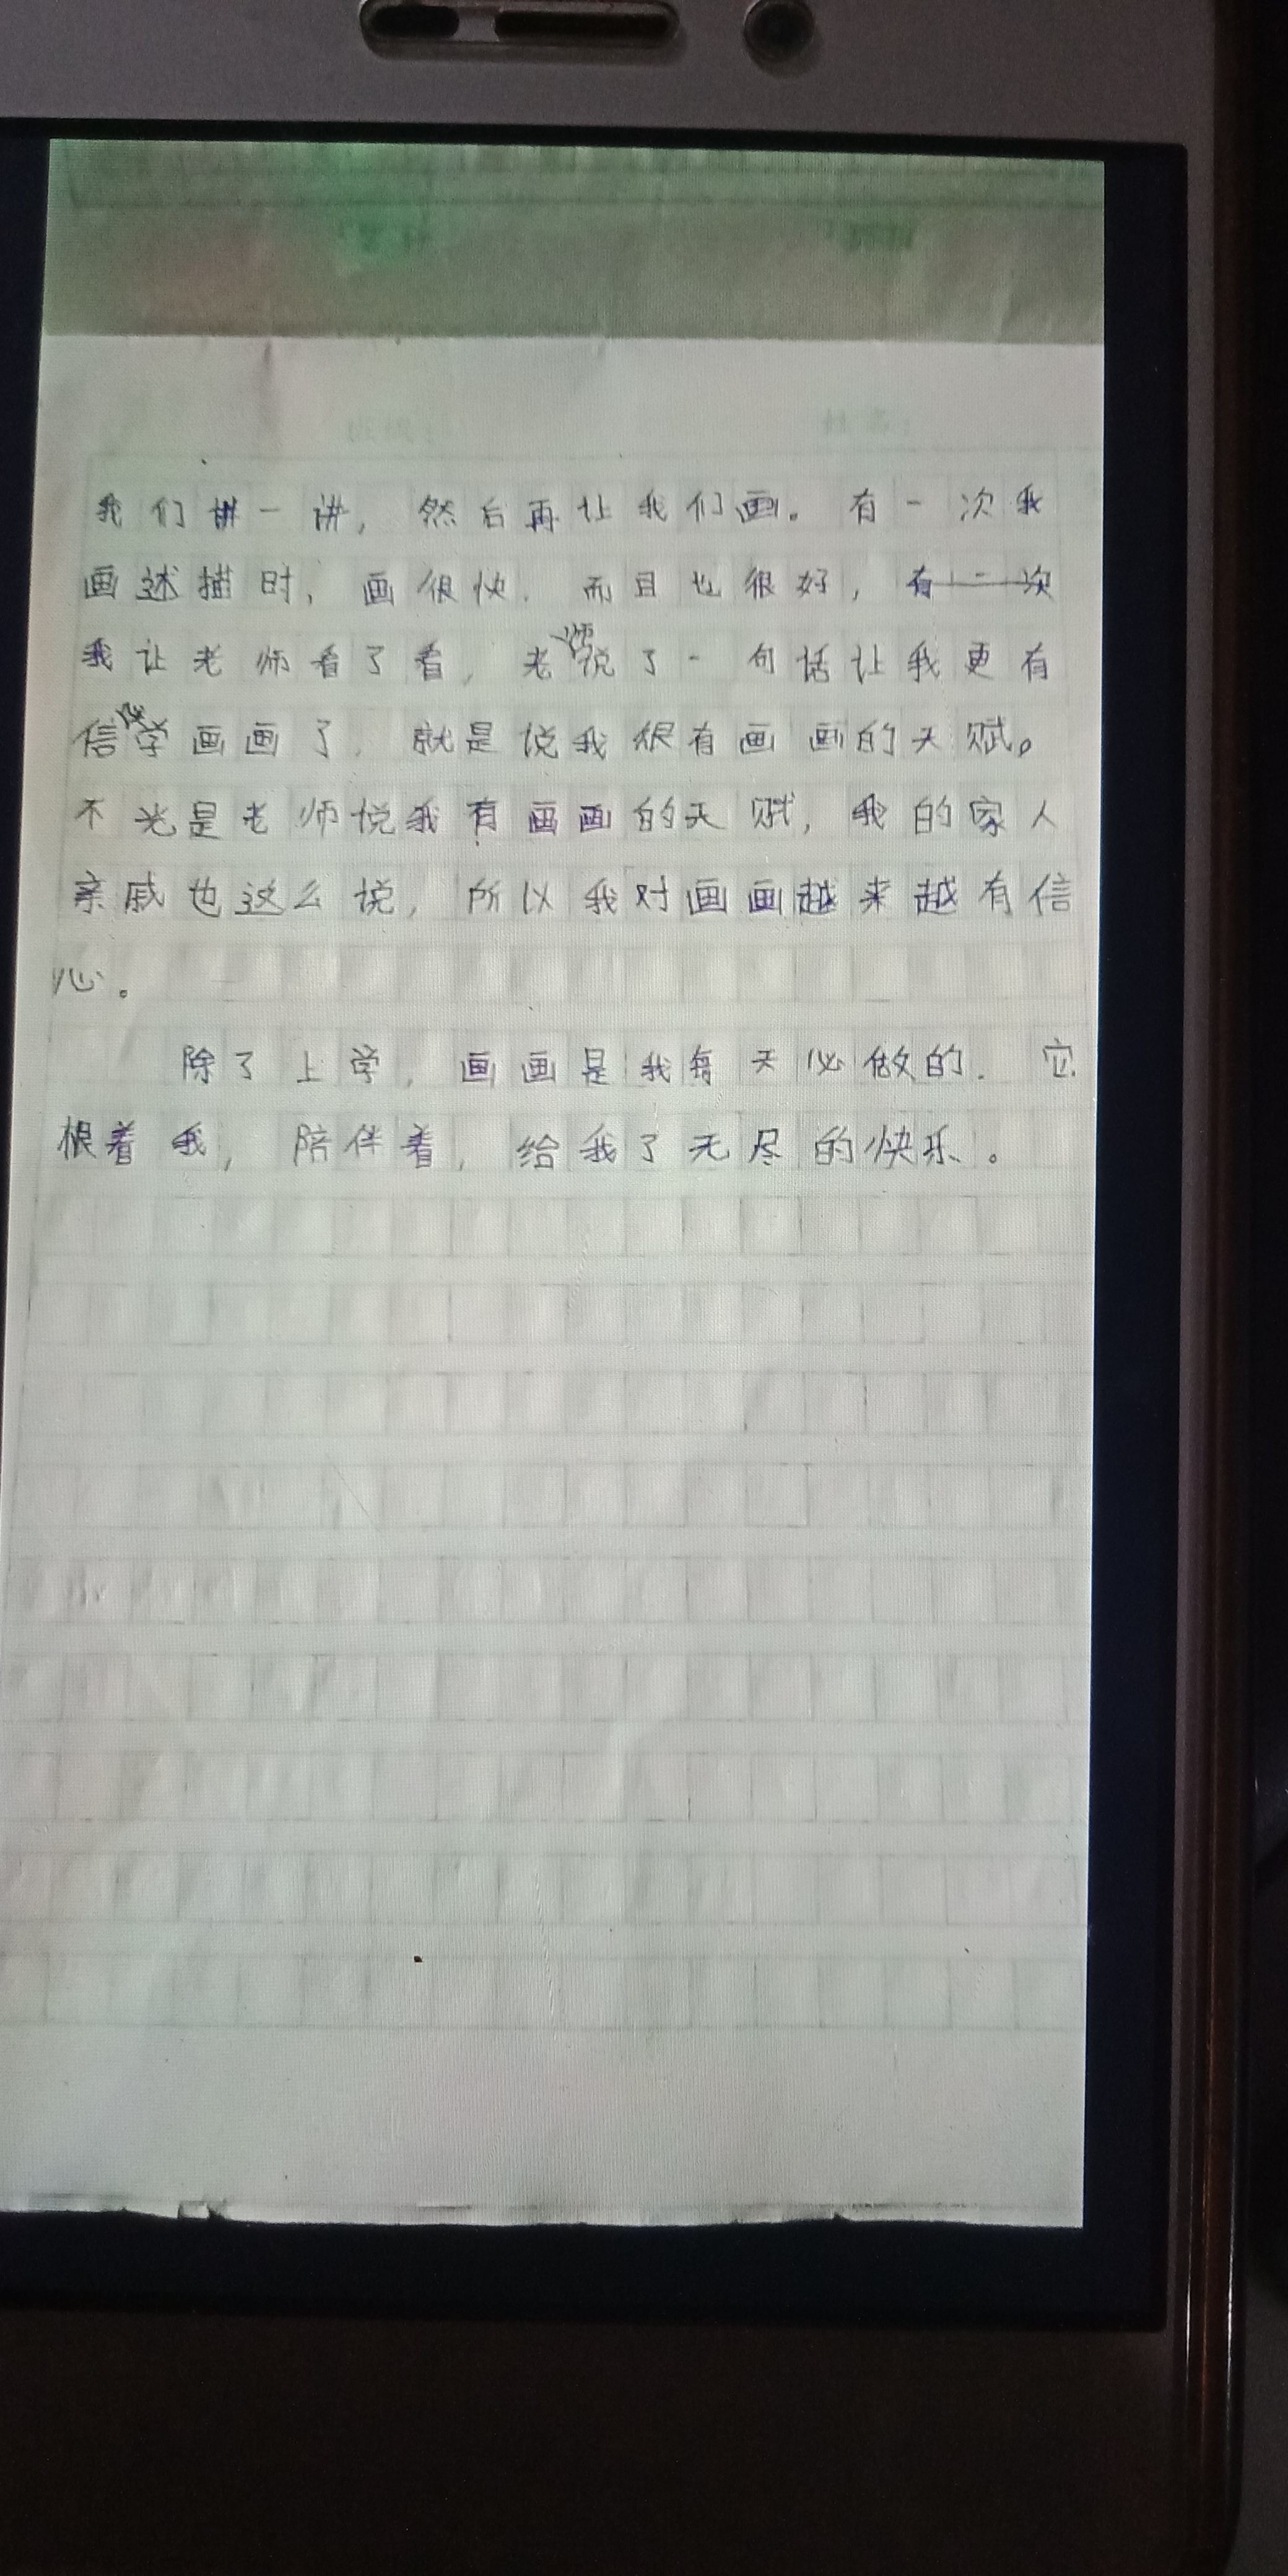 我们讲一讲，然后再让我们画。有一次我
画述描时，画很快．而且也很好，有一次
我让老师看了看，老师说了一句话让我更有
信心学画画了．就是说我很有画画的天赋。
不光是老师说我有画画的天赋，我的家人
亲戚也这么说，所以我对画画越来越有信
心。
除了上学，画画是我每天必做的．它
根着我，陪伴着，给我了无尽的快乐。